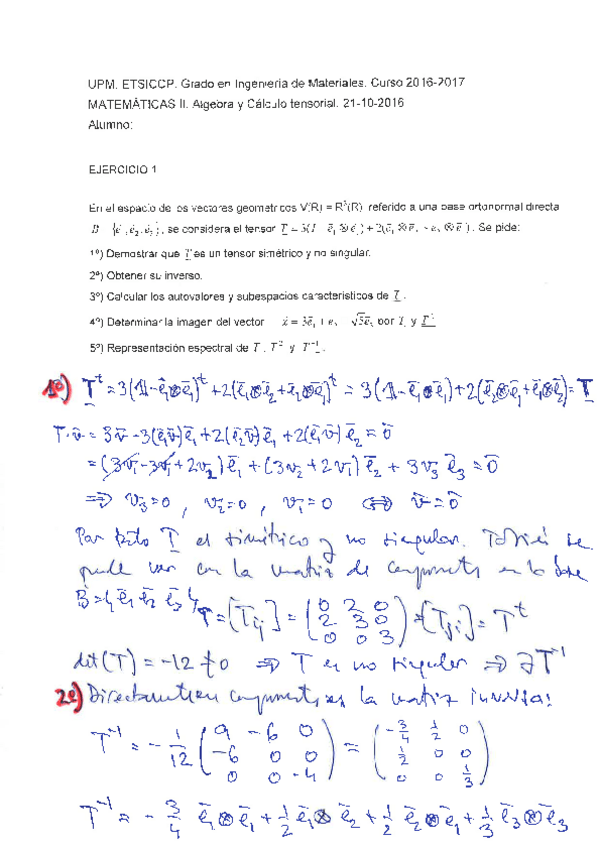 UPM. ETSICCP. Grado en Ingeniería de Materiales. Curso 2016-2017
MATEMÁTICAS II. Algebra y Cálculo tensorial. 21-10-2016
Alumno:
EJERCICIO 1
En el espacio de los vectores geométricos V(R) = R³(R) referido a una base ortonormal directa
B = {e̅₁, e̅₂, e̅₃}, se considera el tensor T = 3(1 - e̅₁⊗e̅₁) + 2(e̅₁⊗e̅₂ + e₂⊗e̅₁). Se pide:
1º) Demostrar que T es un tensor simétrico y no singular.
2º) Obtener su inverso.
3º) Calcular los autovalores y subespacios característicos de T.
4º) Determinar la imagen del vector x̅ = 3e̅₁ + e₂ √5e̅₃ por T y T⁻¹
5º) Representación espectral de T, T² y T⁻¹.
1º) Tᵗ = 3(1 - e̅₁⊗e̅₁)ᵗ + 2(e̅₁⊗e̅₂ + e̅₂⊗e̅₁)ᵗ = 3(1 - e̅₁⊗e̅₁) + 2(e̅₂⊗e̅₁ + e̅₁⊗e̅₂) = T
T·v̅ = 3v̅ - 3(e̅₁v̅)e̅₁ + 2(e̅₂v̅)e̅₁ + 2(e̅₁v̅)e̅₂ = 0̅
= (3v₁ - 3v₁ + 2v₂)e̅₁ + (3v₂ + 2v₁)e̅₂ + 3v₃e̅₃ = 0̅
⇒ v₃=0, v₂=0, v₁=0 ⇔ v̅=0̅
Por tanto T es simétrico y no singular. También se
puede ver con la matriz de components en la base
B={e̅₁ e̅₂ e̅₃} T=[Tij] = (0 2 0 / 2 3 0 / 0 0 3) = [Tji] = Tᵗ
det(T) = -12 ≠ 0 ⇒ T es no singular ⇒ ∃T⁻¹
2º) Directamente en components es la matriz inversa:
T⁻¹ = -1/12 (9 -6 0 / -6 0 0 / 0 0 -4) = (-3/4 1/2 0 / 1/2 0 0 / 0 0 1/3)
T⁻¹ = -3/4 e̅₁⊗e̅₁ + 1/2 e̅₁⊗e̅₂ + 1/2 e̅₂⊗e̅₁ + 1/3 e̅₃⊗e̅₃